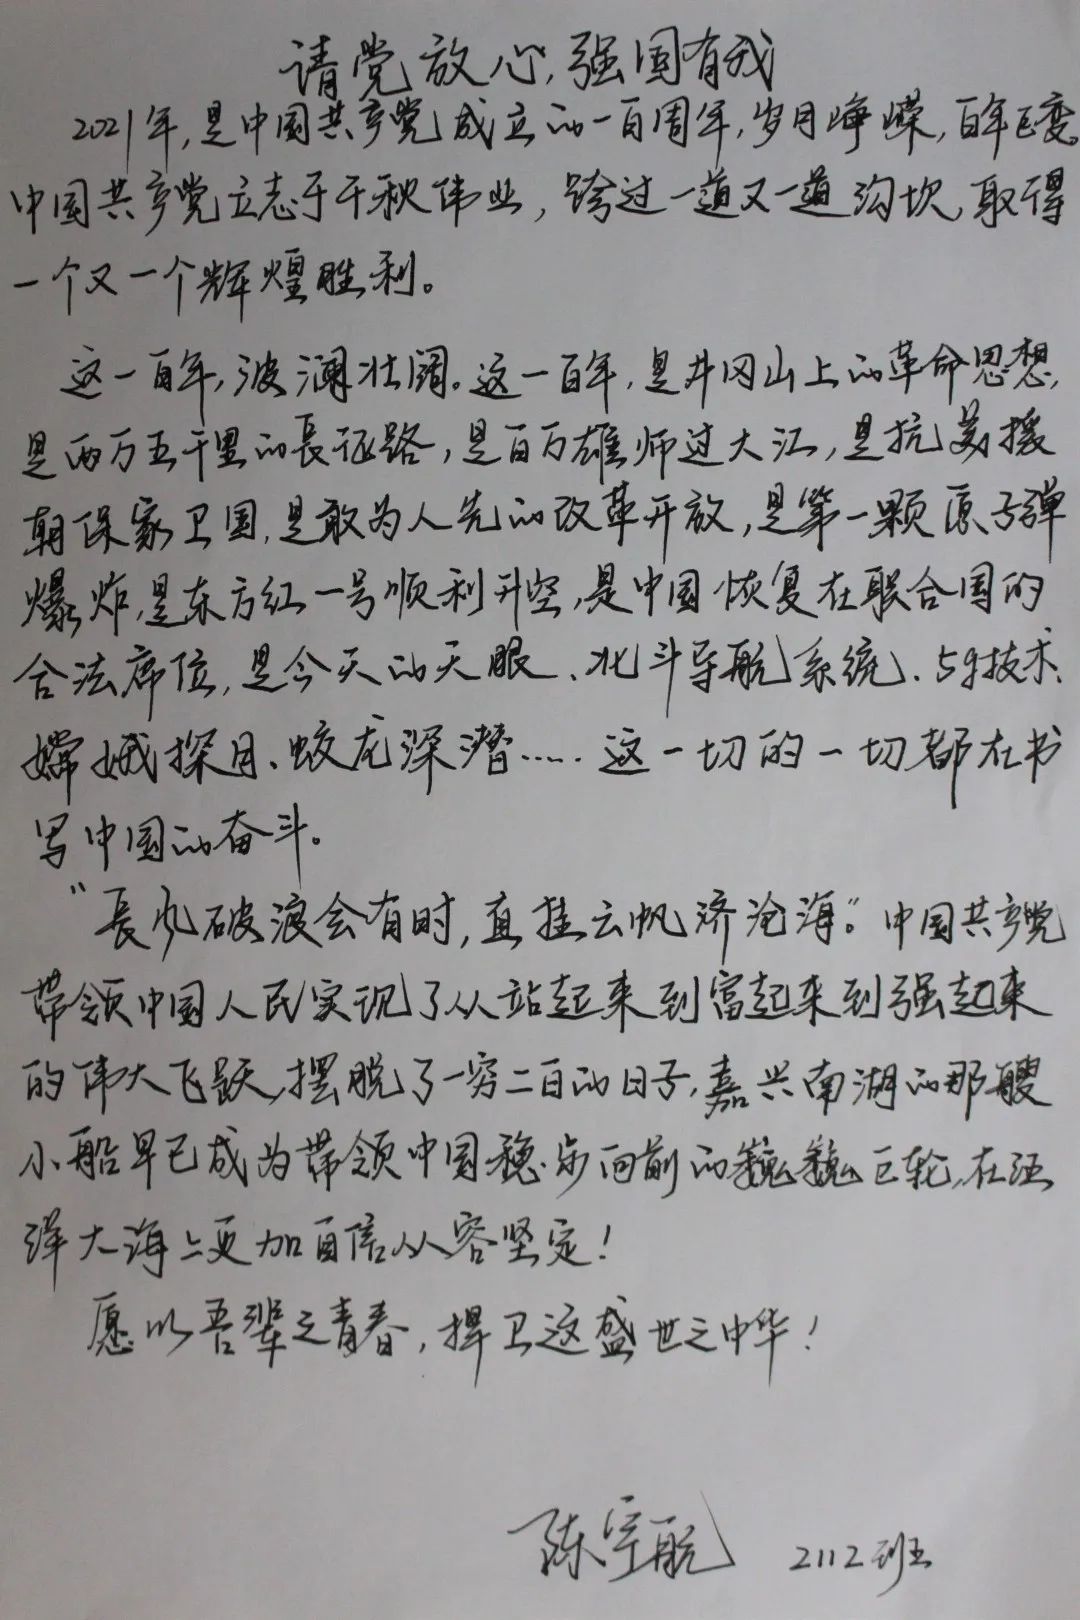 请党放心,强国有我
2021年,是中国共产党成立的一百周年,岁月峥嵘,百年巨变。
中国共产党立志于千秋伟业,跨过一道又一道沟坎,取得
一个又一个辉煌胜利。
这一百年,波澜壮阔。这一百年,是井冈山上的革命思想,
是两万五千里的長征路,是百万雄师过大江,是抗美援
朝保家卫国,是敢为人先的改革开放,是第一颗原子弹
爆炸,是东方红一号顺利升空,是中国恢复在联合国的
合法席位,是今天的天眼、北斗导航系统、5g技术、
嫦娥探月、蛟龙深潜……这一切的一切都在书
写中国的奋斗。
“長风破浪会有时,直挂云帆济沧海。”中国共产党
带领中国人民实现了从站起来到富起来到强起来
的伟大飞跃,摆脱了一穷二白的日子,嘉兴南湖的那艘
小船早已成为带领中国稳步向前的巍巍巨轮,在汪
洋大海上更加自信从容坚定!
愿以吾辈之青春,捍卫这盛世之中华!
陈宇航 2112班